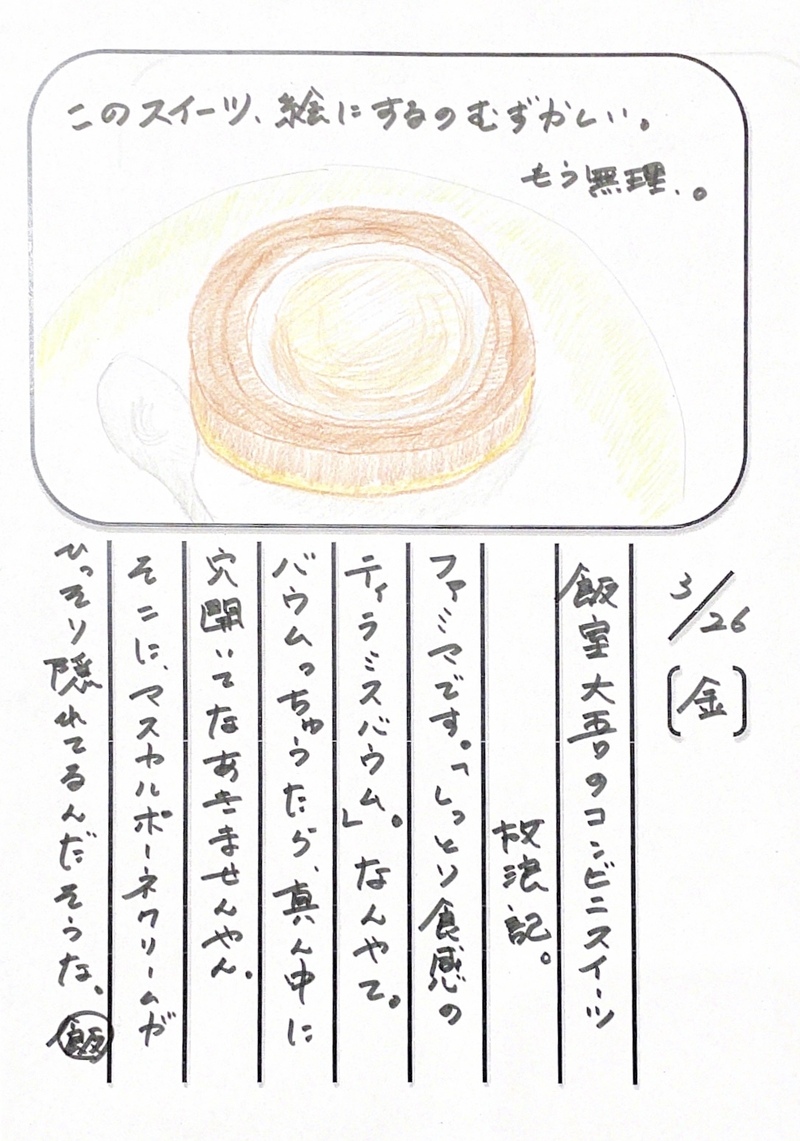 このスイーツ、絵にするのむずかしい。
もう無理、。
3/26
[金]
飯室大吾のコンビニスイーツ
放浪記。
ファミマです。「しっとり食感の
ティラミスバウム」。なんやて。
バウムっちゅうたら、真ん中に
穴開いてなあきませんやん。
そこに、マスカルポーネクリームが
ひっそり隠れてるんだそうな。飯